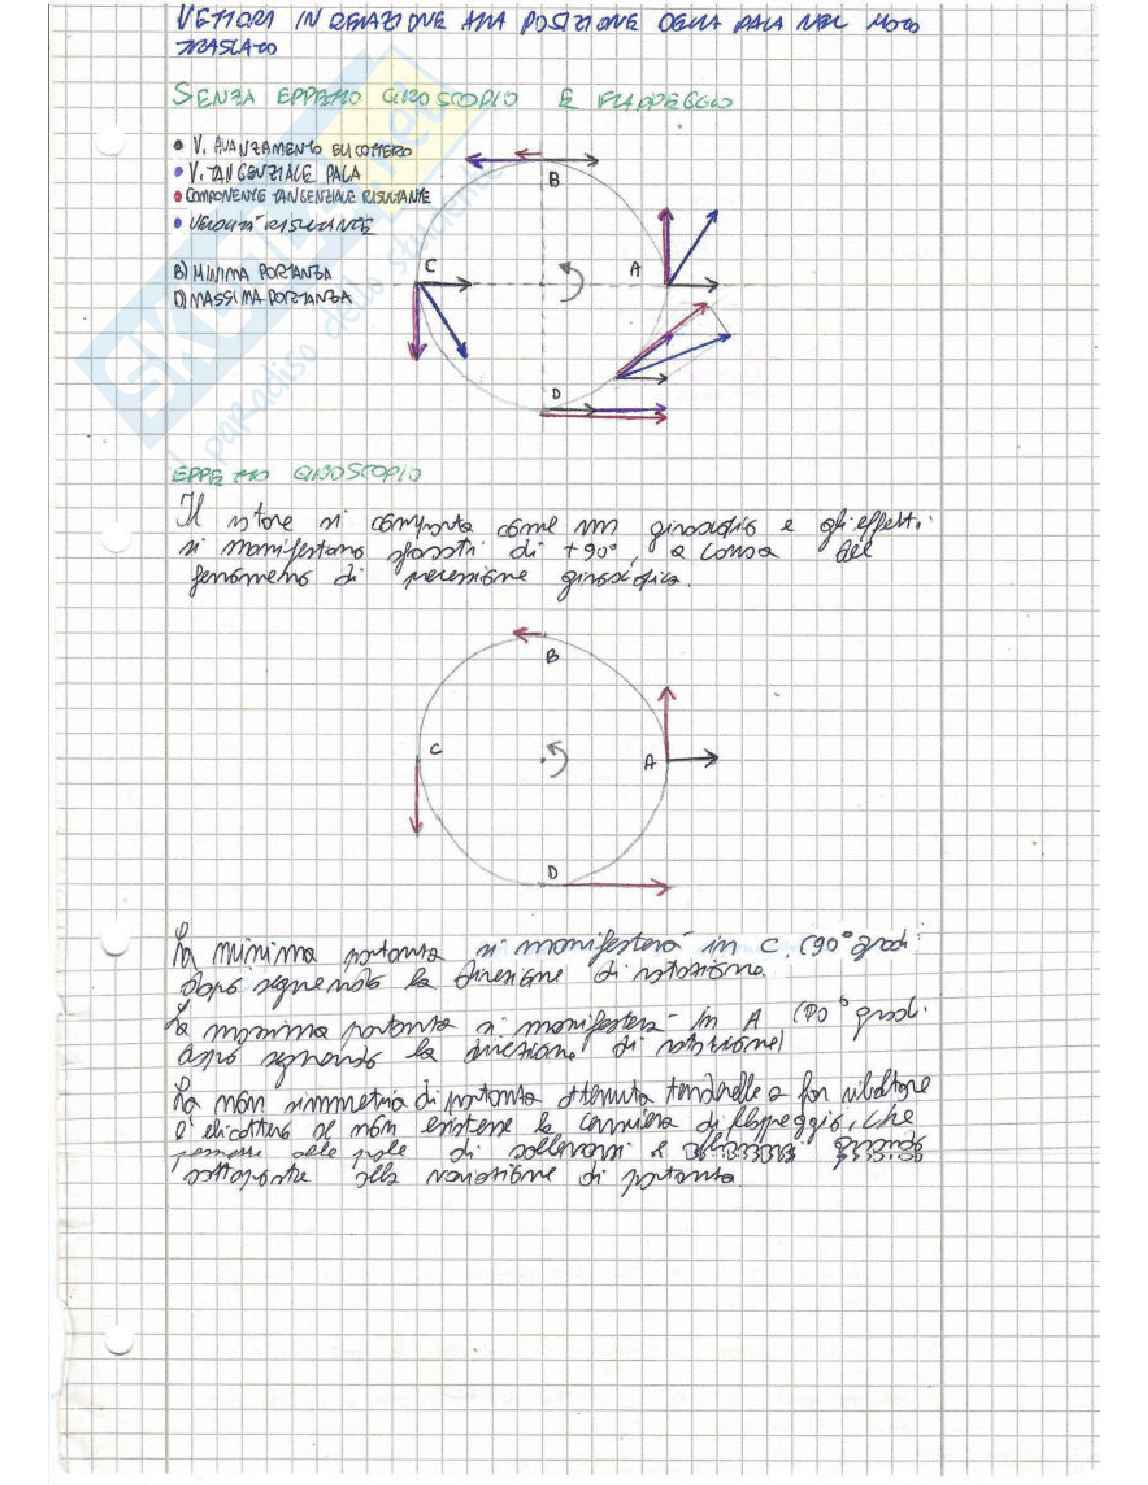 VETTORI IN RELAZIONE ALLA POSIZIONE DELLA PALA NEL MOTO
TRASLATO
SENZA EFFETTO GIROSCOPIO E FLAPPEGGIO
• V. AVANZAMENTO ELICOTTERO
• V. TANGENZIALE PALA
• COMPONENTE TANGENZIALE RISULTANTE
• VELOCITÀ RISULTANTE
B) MINIMA PORTANZA
D) MASSIMA PORTANZA
B
C
A
D
SKUOLA.net
il paradiso dello studente
EFFETTO GIROSCOPIO
Il rotore si comporta come un giroscopio e gli effetti
si manifestano sfasati di +90°, a causa del
fenomeno di precessione giroscopica.
B
C
A
D
La minima portanza si manifesterà in C. (90° gradi
dopo seguendo la direzione di rotazione
La massima portanza si manifesterà in A (90° gradi
dopo seguendo la direzione di rotazione)
La non simmetria di portanza ottenuta tenderebbe a far ribaltare
l'elicottero se non esistesse la cerniera di flappeggio, che
permette alle pale di sollevarsi e
sottoposte alla variazione di portanza.